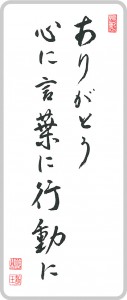 ありがとう
心に言葉に行動に